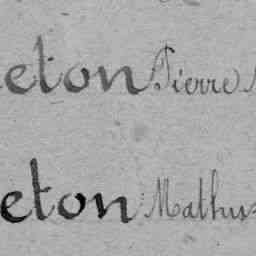 eton Pierre
eton Mathur